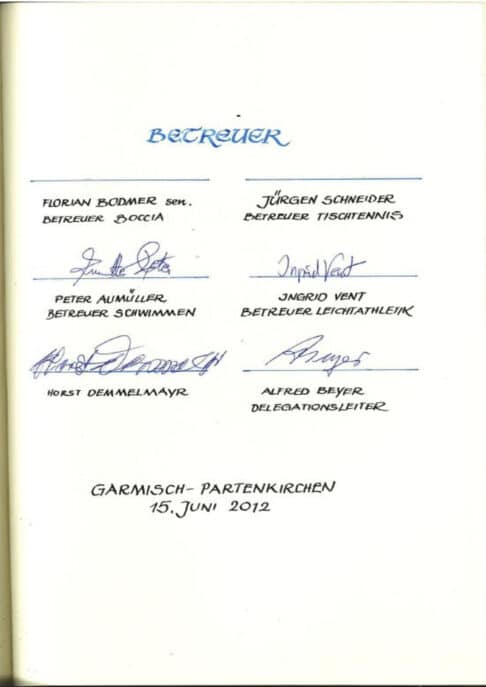 BETREUER
FLORIAN BODMER sen.
BETREUER BOCCIA
JÜRGEN SCHNEIDER
BETREUER TISCHTENNIS
Peter
PETER AUMÜLLER
BETREUER SCHWIMMEN
Ingrid Vent
INGRID VENT
BETREUER LEICHTATHLETIK
Horst Demmelmayr
HORST DEMMELMAYR
ABeyer
ALFRED BEYER
DELEGATIONSLEITER
GARMISCH-PARTENKIRCHEN
15. JUNI 2012